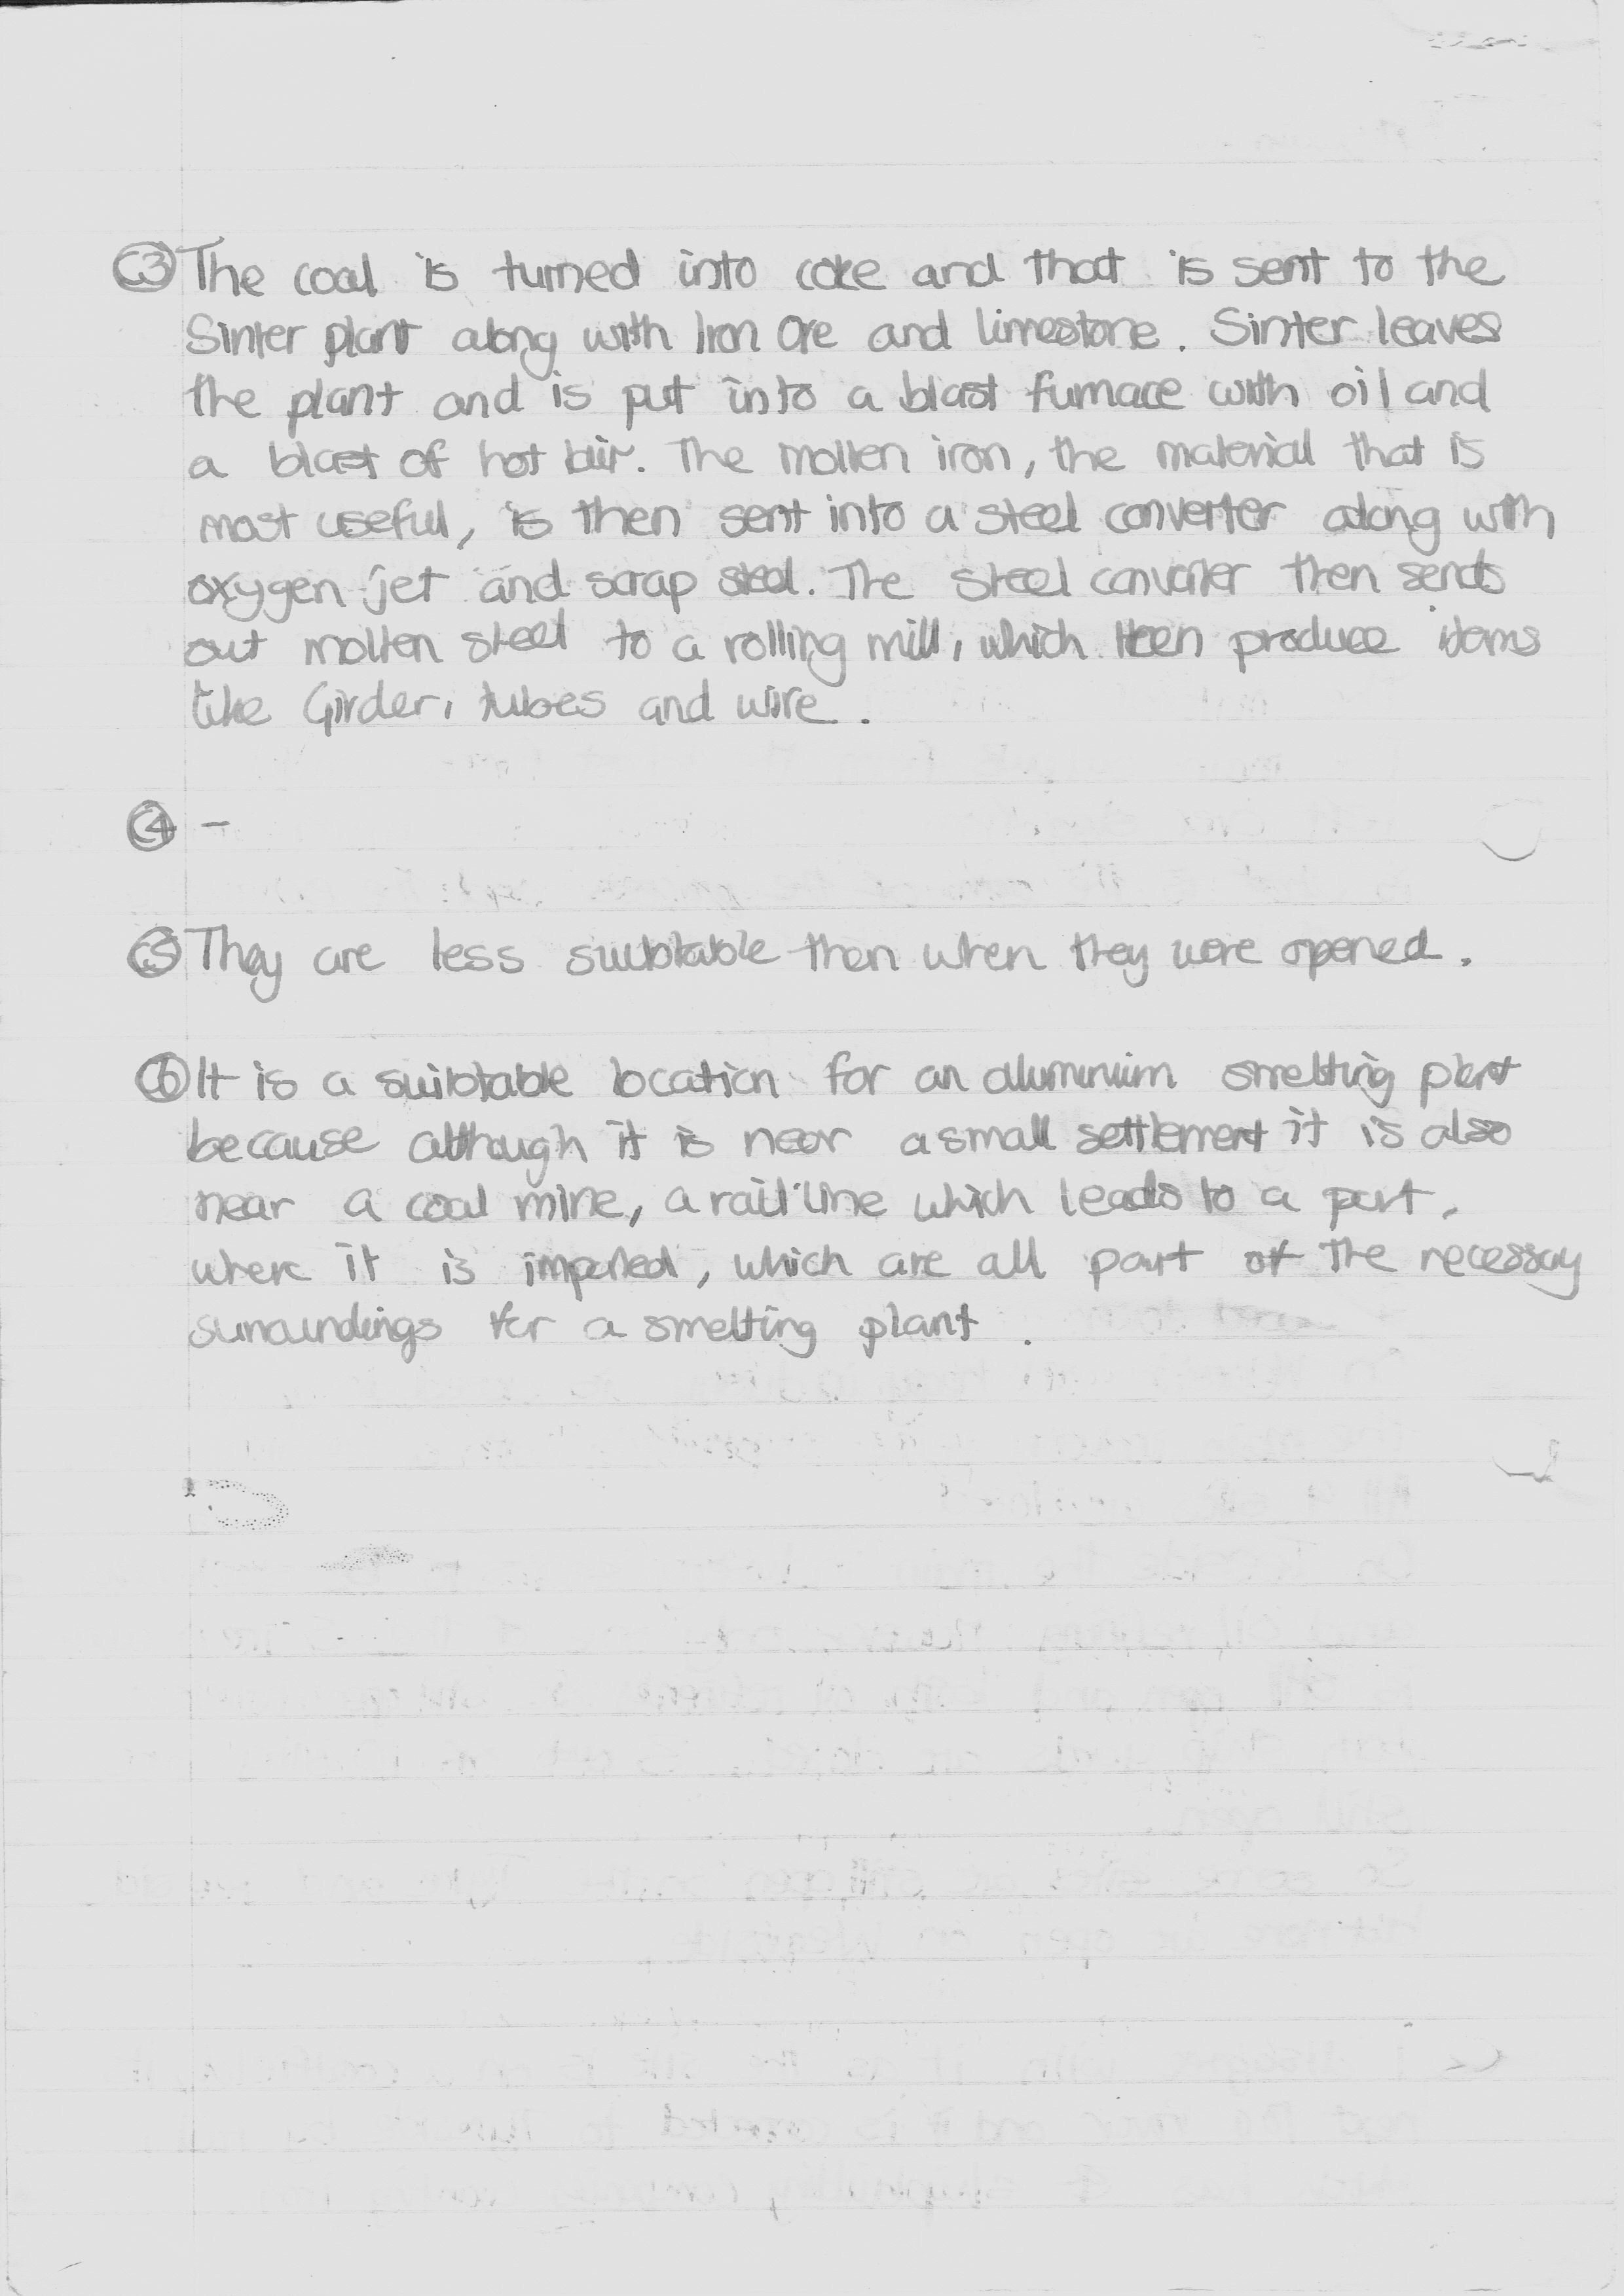 C3 The coal is turned into coke and that is sent to the
Sinter plant along with Iron Ore and limestone. Sinter leaves
the plant and is put into a blast furnace with oil and
a blast of hot air. The molten iron, the material that is
most useful, is then sent into a steel converter along with
oxygen jet and scrap steel. The steel converter then sends
out molten steel to a rolling mill, which then produce items
like Girder, tubes and wire.
C4 -
C5 They are less suibtable then when they were opened.
C6 It is a suibtable location for an aluminium smelting plant
because although it is near a small settlement it is also
near a coal mine, a rail line which leads to a port,
where it is imported, which are all part of the necessay
suroundings for a smelting plant.